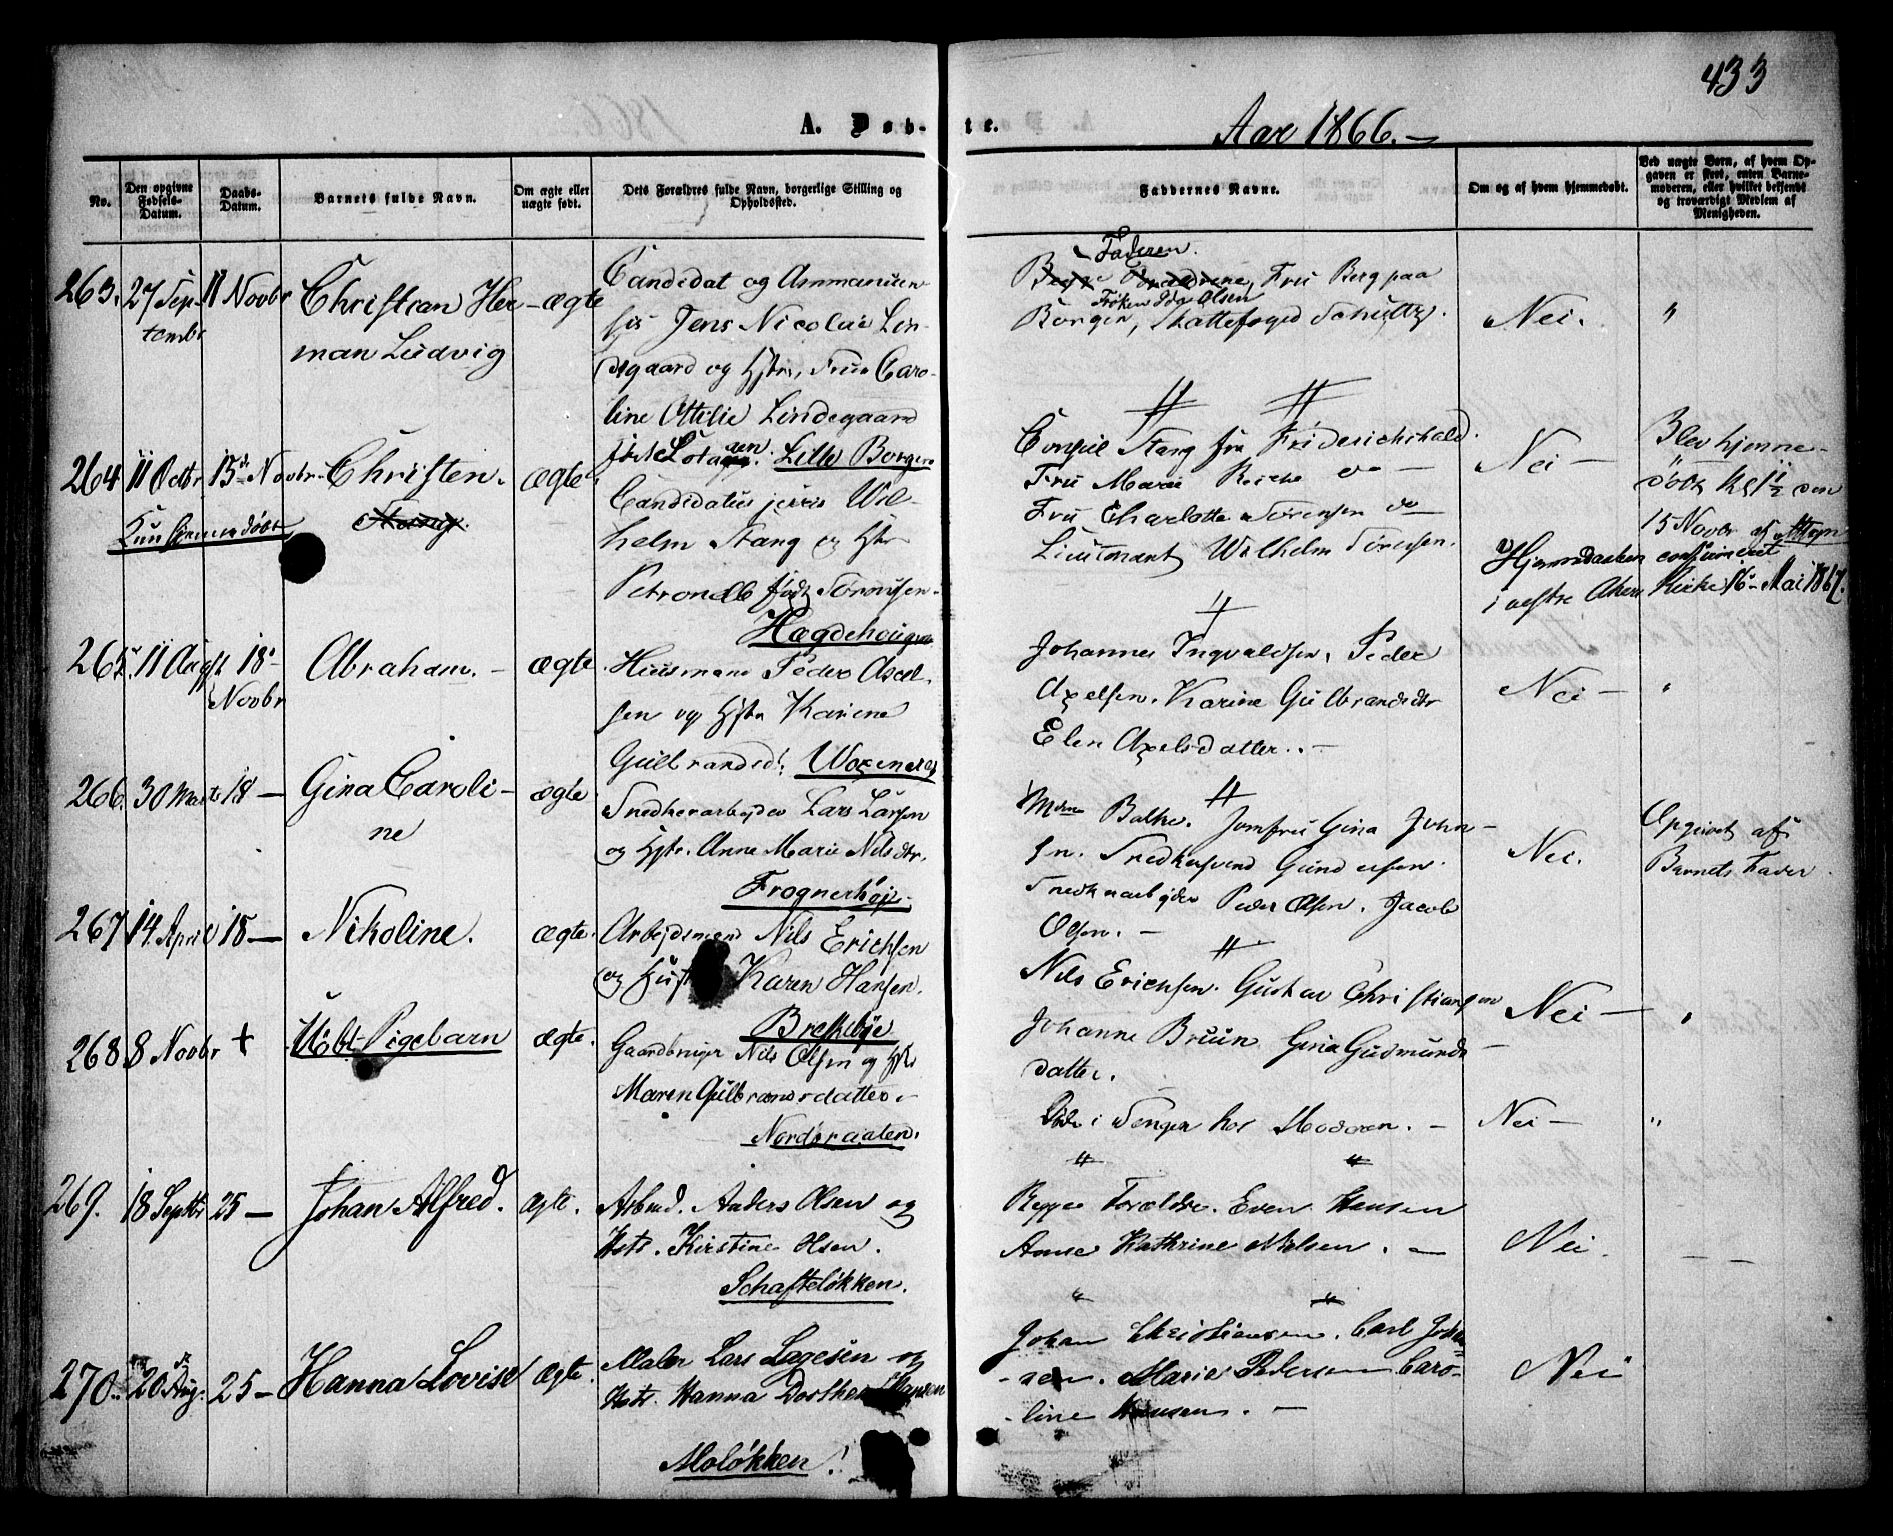 433
A. Døb-
te.
Aar 1866.
No.
Den opgivne Fødsels-Datum.
Daabs-Datum.
Barnets fulde Navn.
Om ægte eller uægte født.
Dets Forældres fulde Navn, borgerlige Stilling og Opholdssted.
Faddernes Navne.
Om og af hvem hjemmedøbt.
Ved uægte Børn, af hvem Op-
gaven er skeet, enten Barne-
moderen, eller hvilket bekjendt
og troværdigt Medlem af
Menigheden.
263. 27 Sep-
tembr
11 Novbr
Christian Her-
man Ludvig
ægte
Candidat og Ammanuen-
sis Jens Nicolai Lin-
degaard og Hstr, Frue Caro-
line Ottilie Lindegaard
født
Lille Borgen
Faderen.
Fru Berg paa
Frøken Ida Olsen
Borgen, Skattefoged Schultz.
Nei.
"
264 11 Octbr. 15de Novbr.
Kun hjemmedøbt
Christen.
Stang.
ægte
Candidatus juris Wil-
helm Stang og Hstr
Petronelle født Sørensen
Hægdehougen
Consul Stang fra Friderichshald.
Fru Marie do
Fru Charlotte Sørensen do
Lieutenant Wilhelm Sørensen.
Nei
Blev hjemme-
døbt Kl 1½ den
15 Novbr af
Hjemmedaaben confirmeret
i vestre Akers Kirke 16 Mai 1867.
265. 11 Augst 18
Novbr
Abraham.
ægte
Huusmand Peder Axel-
sen og Hstr Karine
Gulbrandsd:
Johannes Ingvaldsen, Peder
Axelsen. Karine Gulbrandsdtr
Elen Axelsdatter.
Nei
"
266. 30 Marts 18
Gina Caroli-
ne
ægte
Snedkerarbeider Lars Larsen
og Hstr. Anne Marie Nilsdtr.
Frognerhøi
Balke. Jomfru Gina John-
sn. Snedkersvend Gundersen.
Snedkerarbeider Peder Olsen. Jacob
Olsen.
Nei.
Opgivet af
Barnets Fader
267 14 April 18
Nikoline.
ægte.
Arbeidsmand Nils Erichsen
og Hustr Karen Hansen.
Breskebye
Nils Erichsen. Gustav Christiansen
Johanne Bruun Gina Gudmunds-
datter.
Nei
"
268. 8 Novbr +
Udbt Pigebarn
ægte.
Gaardbruger Nils Olsen og Hstr
Maren Gulbrandsdatter.
Nordbraaten.
Døde i Sengen hos Moderen.
Nei
"
269. 18 Septbr 25
Johan Alfred.
ægte.
Arbmd. Anders Olsen og
Hstr. Kirstine Olsen.
Schafteløkken.
Begge Forældre. Even Hansen
Anne Kathrine Nielsen.
Nei.
270. 20 Aug. 25
Hanna Lovise
ægte.
Maler Lars Lagesen og
Hstr. Hanna Dorthea Hansen
Moløkken!
Johan Christiansen. Carl Johan-
sen. Marie Pedersen Caro-
line Hansen.
Nei